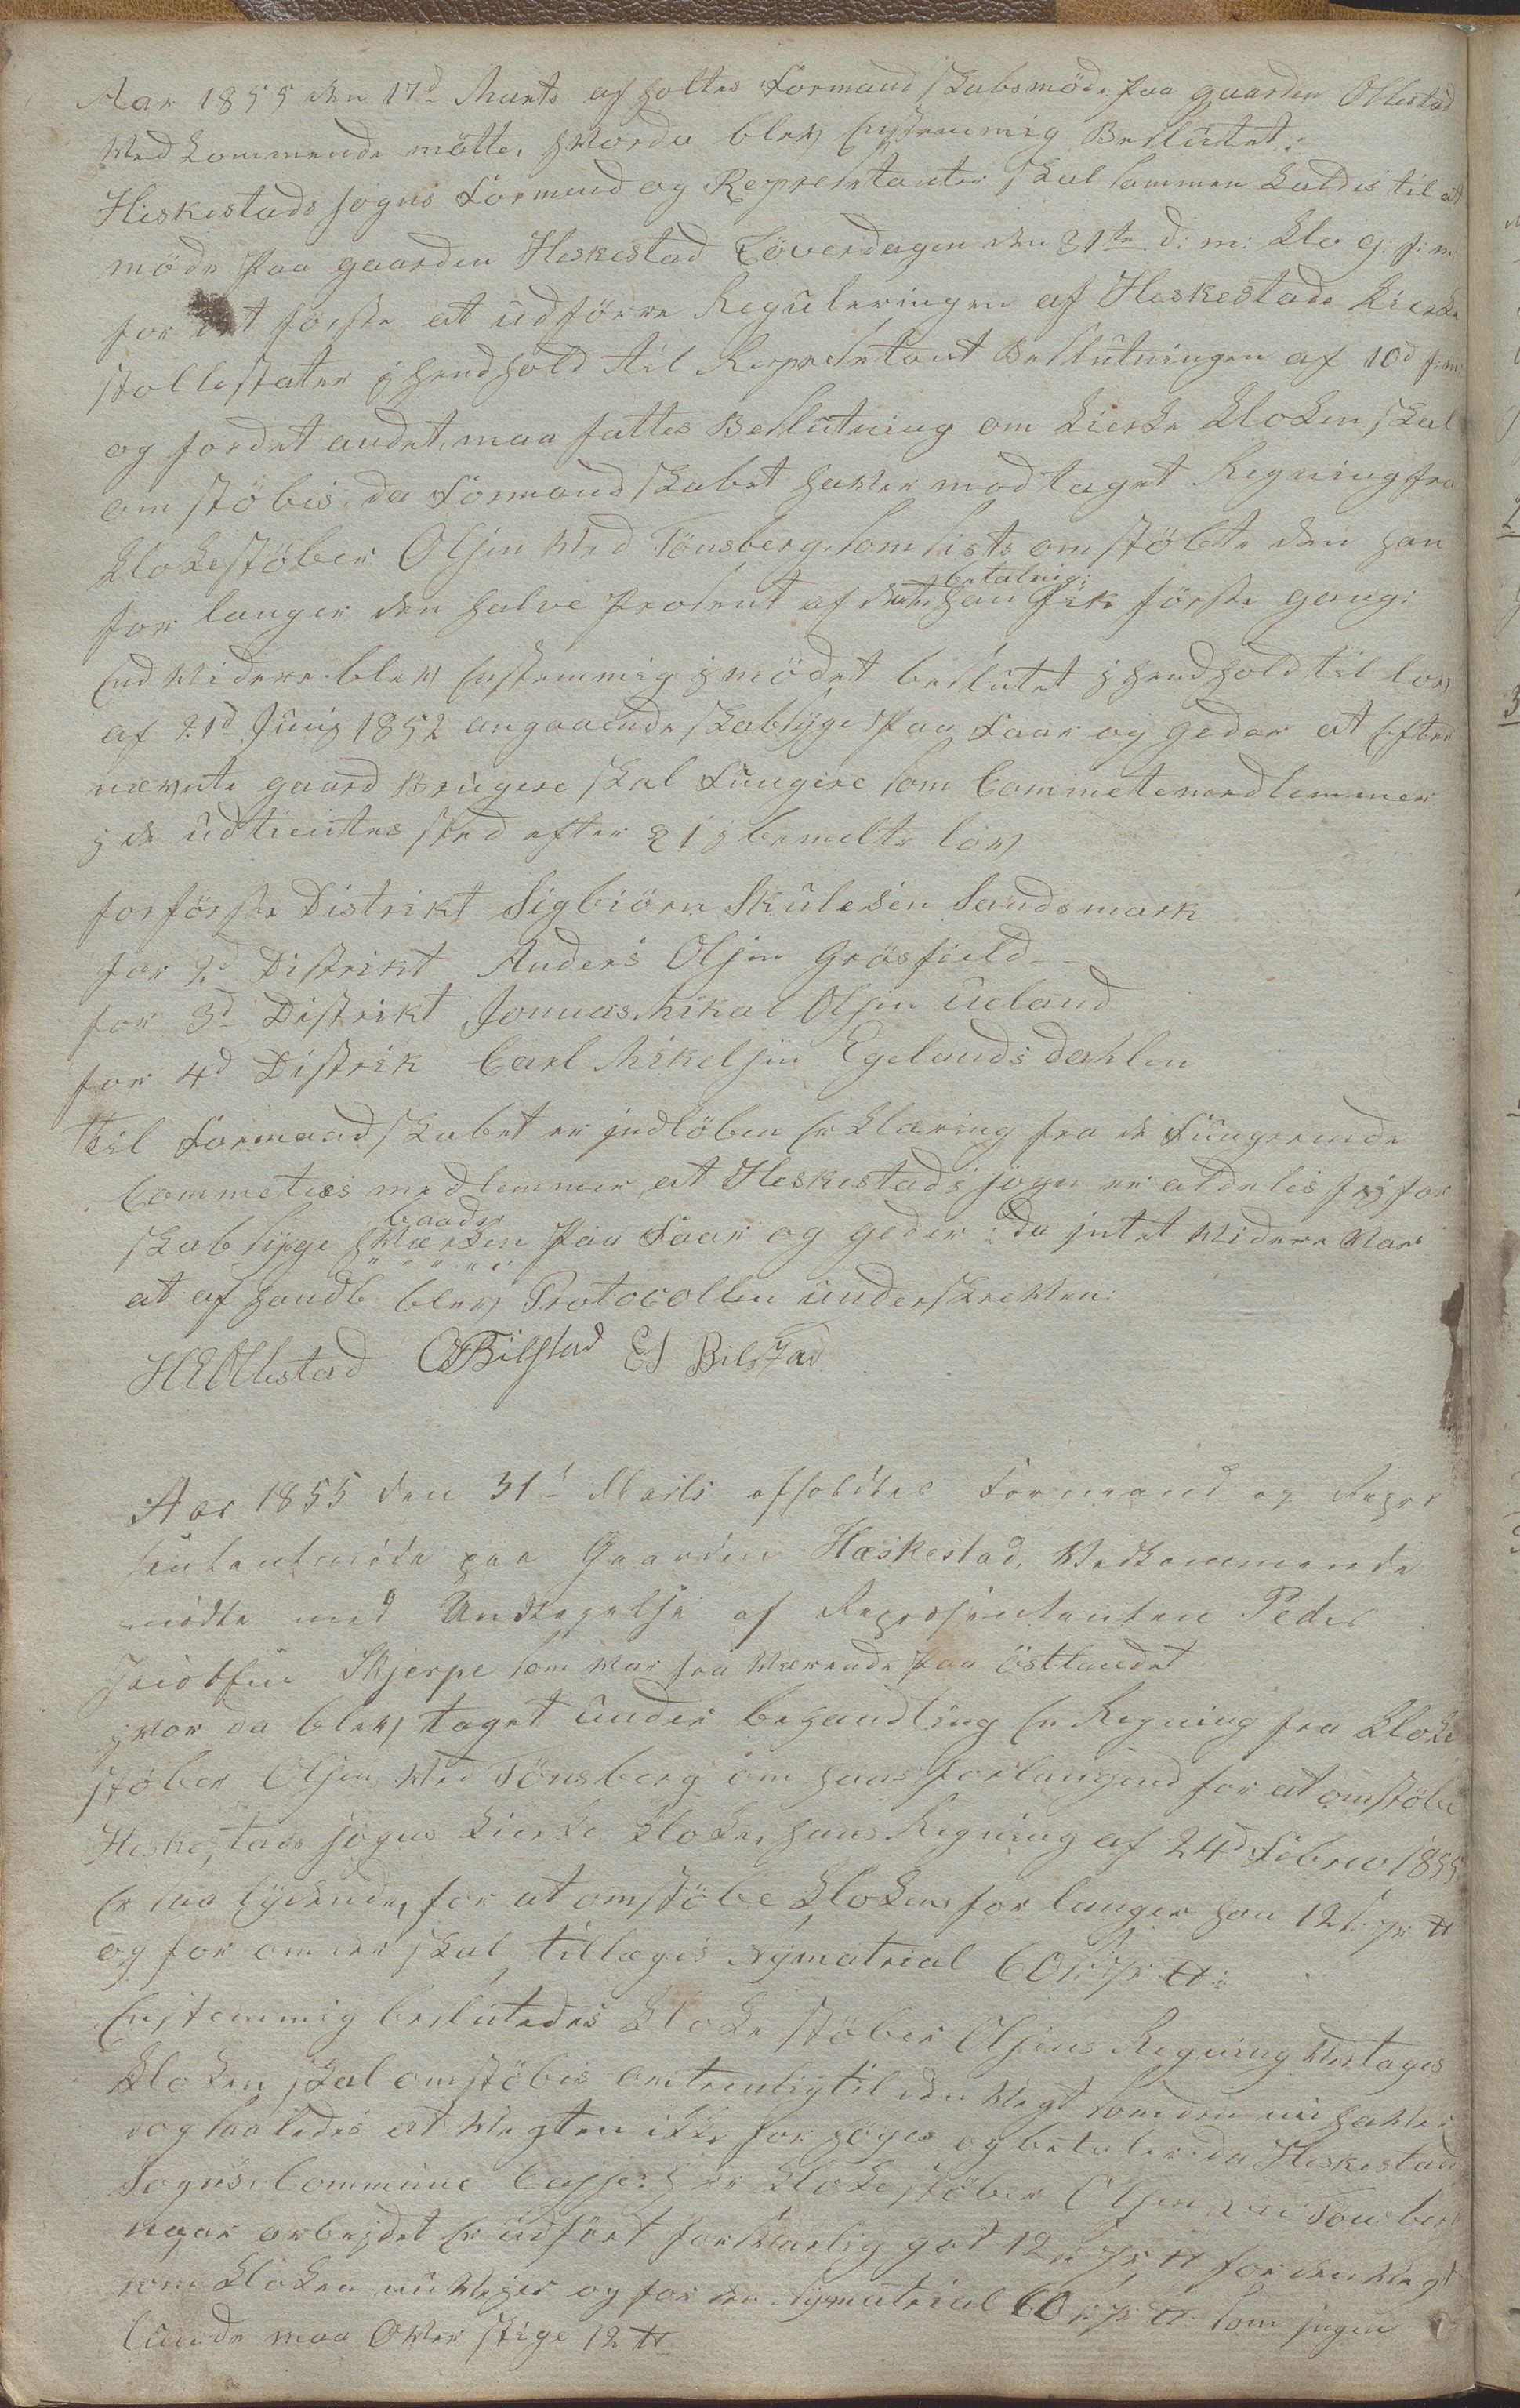 Aar 1855 den 17d Marts afholtes Formandskabsmöde paa gaarden Ollestad
Wedkommende mötte, hWorda bleW Enstemmig Beslutet:
Heskestads sogns Formend og Representanter skal sammen kaldes til at
möde paa gaarden Heskestad Löverdagen den 31te d: m: klo 9. f: m:
for det förste at udförre Reguleringen af Heskestads kierke
stollestater j hendhold til Representant Beslutningen af 10d f: m:
og fordet andet, maa fattes Beslutning om kierke kloken skal
om stöbes, da Formandskabet haWer modtaget Regning fra
klokestöber Olsen Wed Tönsberg, som sists omstöbte den han
for langer den halve Prosent af den betalning: han fik förste gang:
End Widere bleW Enstemmig j mödet beslutet j hendhold til loW
af 21d Junj 1852 angaaende skabsyge Paa Faar og geder at Efter
nævnte gaard Brugere skal Fungere som Commetemedlemmer
j de udtrentes sted efter § 1 j bemelte loW
for förste Distrikt Sigbiörn Skulesen Sandsmark
for 2d Distrikt Anders Olsen Grösfield
for 3d Distrikt Jonnas Mikal Olsen Ueland
for 4d Distrik Carl Mikelsen Egelandsdahlen
til Formandskabet er jndlöben Erklæring fra de Fungerende
Commetees medlemmer, at Heskestads sogn er aldeles frj for
skabsyge hWerken baade Paa Faar og geder: da jntet Widere War
at afhandle bleW Protocollen underskreWen:
HEOllestad OTBilstad ES Bilstad
Aar 1855 den 31d Marts afholdtes Formand og Repre
sentantmöde paa Gaarden Hæskestad, Vedkommende
mödte med Undtagelse af Representanten Peder
Jacobsen Skjerpe som War fra Wærende paa östlandet
hWor da bleW taget under behandling En Regning fra kloke
stöber Olsen, Wed Tönsberg om hans forlangend for at omstöbe
Heskestads sogns kierke kloke, hans Regning af 24d Februar 1855
Er saa lydende, for at omstöbe kloken for langer han 12 s: pr: ℔
og for om der skal tillægis Nymatrial 60 s: pr ℔:
Enstemmig beslutedes kloke stöber Olsens Regning Wedtages
kloken skal omstöbes omtrentlig til den Wegt som den nu haWer
dog saaledes at Wegten ikke for höges og betaler da Heskestad
Sogns Commune Casse: hr klokestöber Olsen, Wed Tönsberg
naar arbejdet Er udfört forsWarlig got 12 s: pr ℔ for den Wegt
som kloken nu Wejer og for den Nymatrial 60 s: pr ℔. som jngen
lunde maa OWer stige 12 ℔